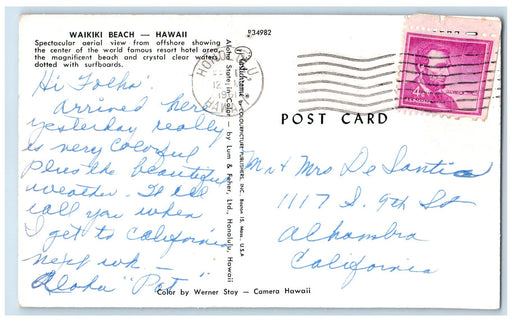 WAIKIKI BEACH — HAWAII
Spectacular aerial view from offshore showing
the center of the world famous resort hotel area,
the magnificent beach and crystal clear waters
dotted with surfboards.
P34982
Hi Folks!
Arrived here
yesterday really
is very colorful
plus the beautiful
weather. I'll
call you when
I get to California
next wk —
Aloha "Pat"
by COLOURPICTURE PUBLISHERS, INC. Boston 15, Mass., U.S.A.
Aloha State, in Color — by Lum & Feher, Ltd., Honolulu, Hawaii
HONOLULU
12
HAWAII
4¢
POST CARD
Mr & Mrs De Santis
1117 S. 9th St
Alhambra
California
Color by Werner Stoy — Camera Hawaii